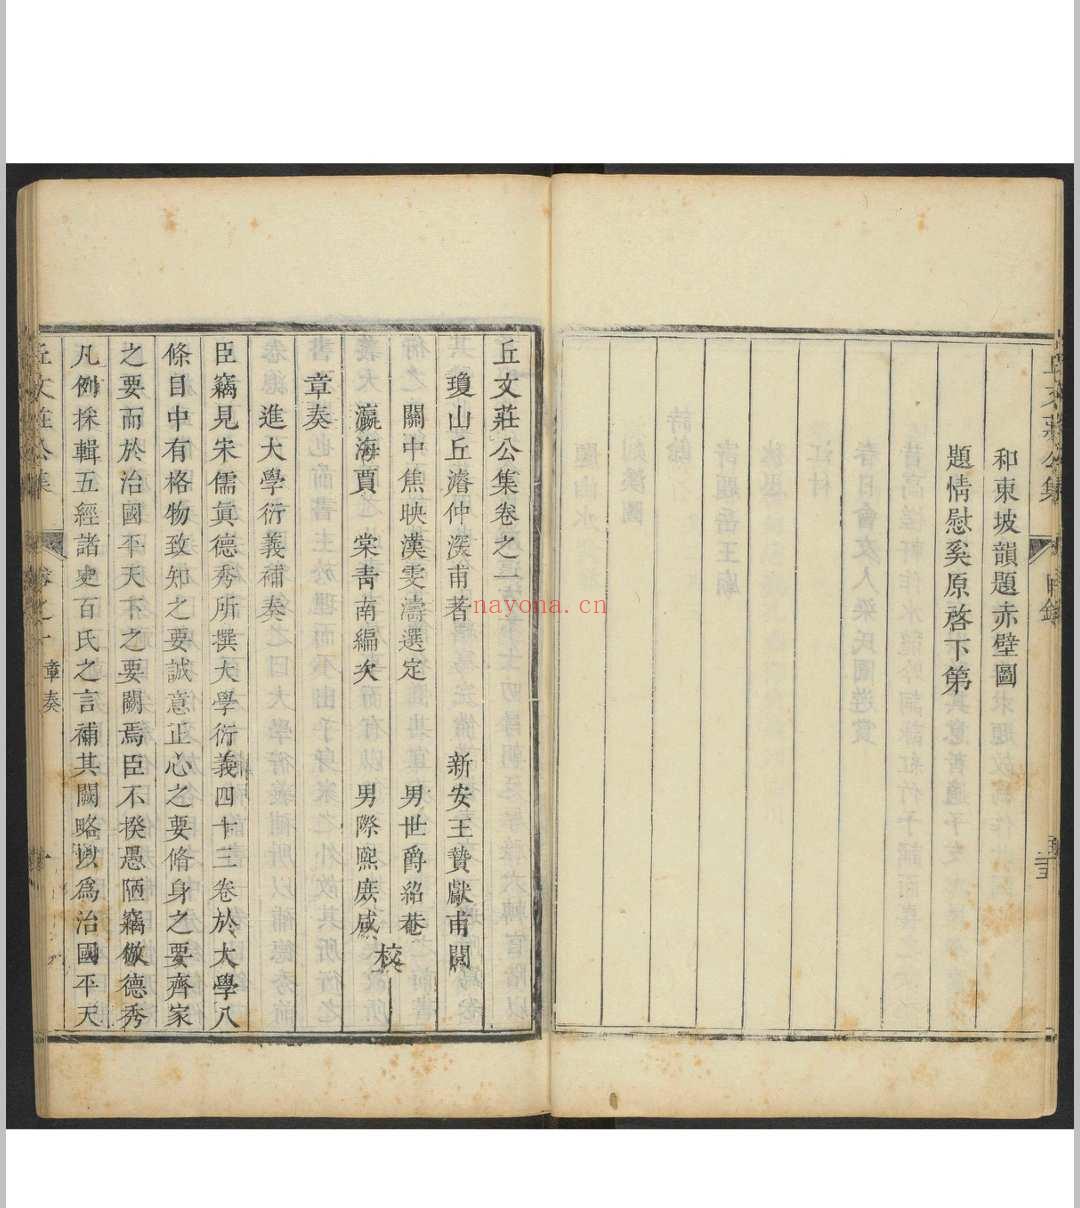 和東坡韻題赤壁圖
題情慰奚原啓下第
丘文莊公集卷之一
瓊山丘濬仲深甫著 新安王贊獻甫閱
關中焦映漢雯濤選定 男世爵紹菴
瀛海賈 棠青南編次 男際熙庶咸
校
章奏
進大學衍義補奏
臣竊見宋儒眞德秀所撰大學衍義四十三卷於大學八
條目中有格物致知之要誠意正心之要脩身之要齊家
之要而於治國平天下之要闕焉臣不揆愚陋竊倣德秀
凡例採輯五經諸史百氏之言補其闕略以爲治國平天
丘文莊公集 卷之一 章奏 一
nayona.cn